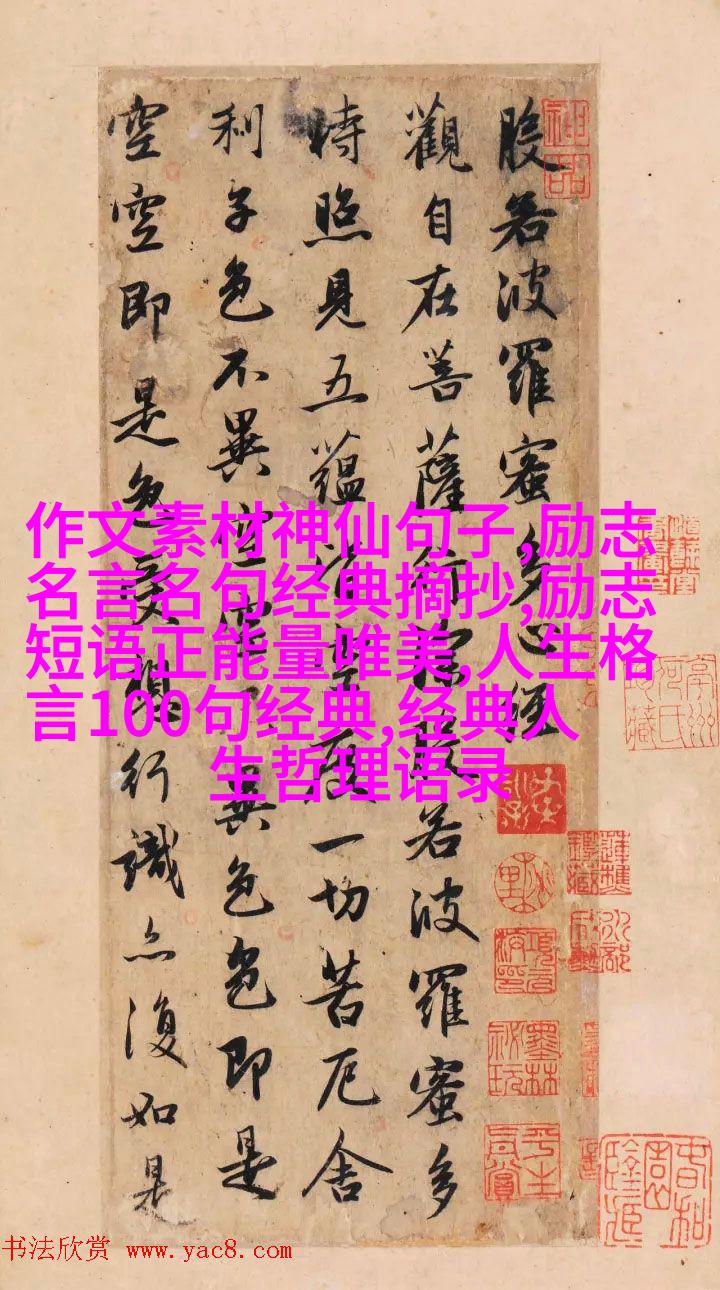 般若波羅蜜多心經
觀自在菩薩行深般若波羅蜜多
時照見五蘊皆空度一切苦厄舍
利子色不異空空不異色色即是
空空即是色受想行識亦復如是
作文素材神仙句子,励志
名言名句经典摘抄,励志
短语正能量唯美,人生格
言100句经典,经典人
生哲理语录
神品
书法欣赏 www.yac8.com